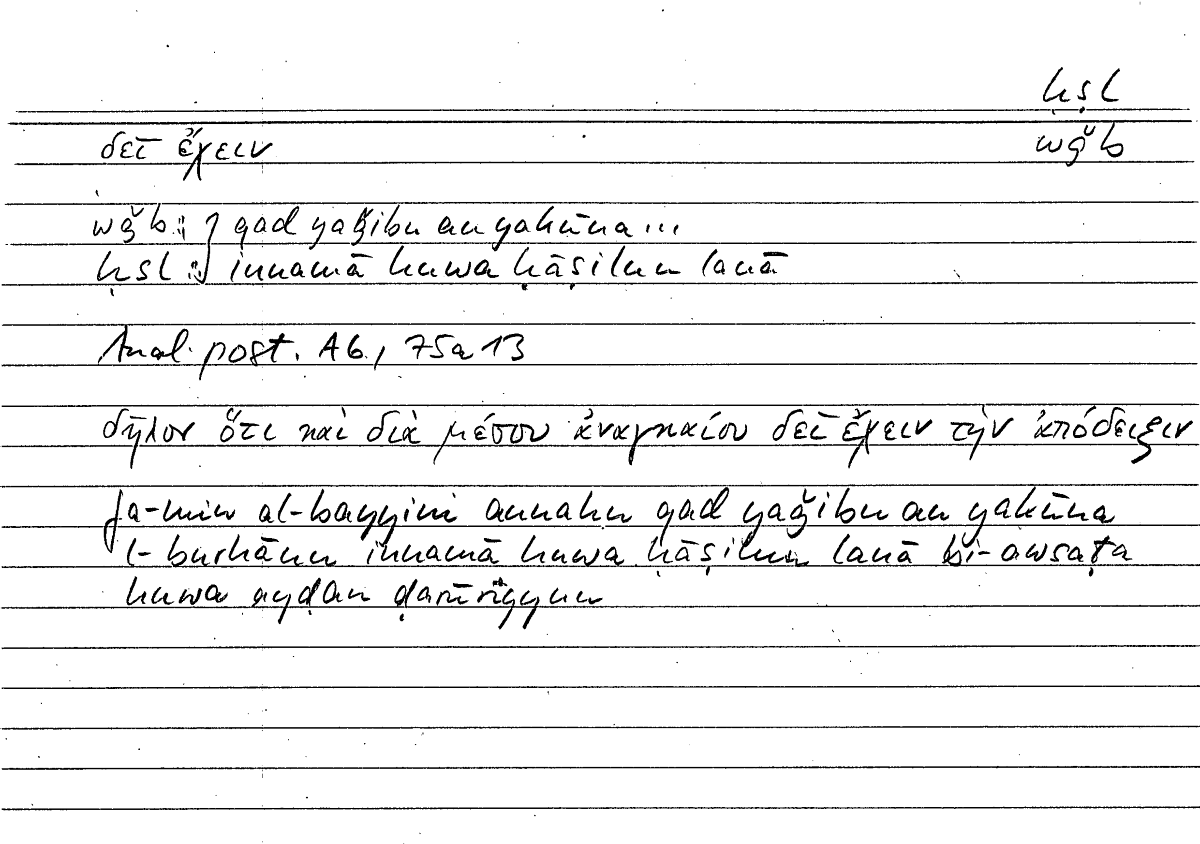 ḥṣl
δεῖ ἔχειν wǧb
wǧb : qad yaǧibu an yakūna...
ḥṣl : innamā huwa ḥāṣilun lanā
Anal. post. A6, 75a13
δῆλον ὅτι καὶ διὰ μέσου ἀναγκαίου δεῖ ἔχειν τὴν ἀπόδειξιν
fa-min al-bayyini annahu qad yaǧibu an yakūna
l-burhānu innamā huwa ḥāṣilun lanā bi-awsaṭa
huwa ayḍan ḍarūrīyyun